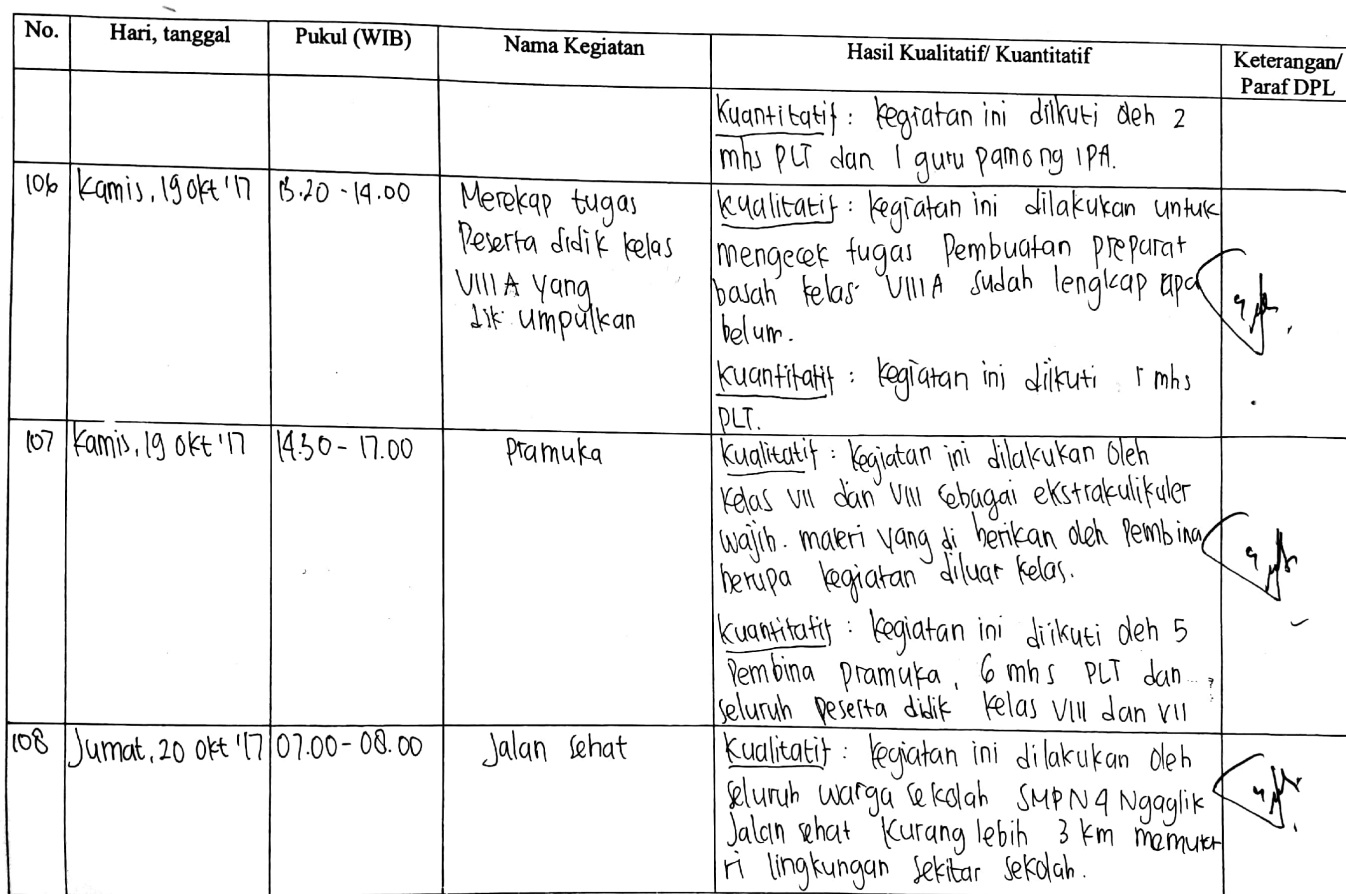 No. Hari, tanggal Pukul (WIB) Nama Kegiatan Hasil Kualitatif/ Kuantitatif Keterangan/
Paraf DPL
Kuantitatif : kegiatan ini diikuti oleh 2
mhs PLT dan 1 guru pamong IPA.
106 Kamis, 19 Okt '17 13.20 - 14.00
Merekap tugas
Peserta didik kelas
VIII A yang
dikumpulkan
Kualitatif : kegiatan ini dilakukan untuk
mengecek tugas Pembuatan preparat
basah kelas VIII A sudah lengkap apa
belum.
Kuantitatif : kegiatan ini diikuti 1 mhs
PLT.
107 Kamis, 19 Okt '17 14.30 - 17.00 Pramuka
Kualitatif : kegiatan ini dilakukan oleh
kelas VII dan VIII sebagai ekstrakulikuler
wajib. materi yang di berikan oleh Pembina
berupa kegiatan diluar kelas.
Kuantitatif : kegiatan ini diikuti oleh 5
Pembina pramuka, 6 mhs PLT dan
seluruh peserta didik kelas VIII dan VII
108 Jumat, 20 Okt '17 07.00 - 08.00 Jalan sehat
Kualitatif : kegiatan ini dilakukan oleh
seluruh warga sekolah SMPN 4 Ngaglik
Jalan sehat kurang lebih 3 km memutar
ri lingkungan sekitar sekolah.